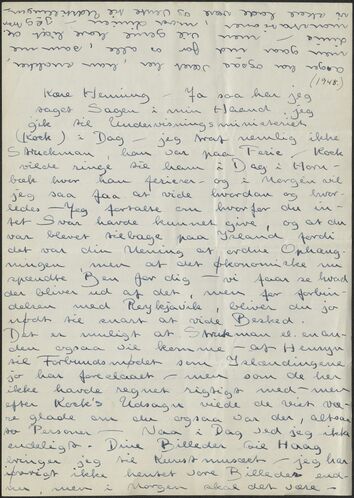 (1948.)
Kære Henning – Ja saa har jeg
taget Sagen i min Haand jeg
gik til Undervisningsministeriet
(Kock) i Dag – jeg traf nemlig ikke
Struckman, han var paa Ferie – Kock
vilde ringe til ham i Dag i Horn-
bæk hvor han ferierer – og i Morgen vil
jeg saa faa at vide hvordan og hvor-
ledes – Jeg fortalte om hvorfor du in-
tet Svar havde kunnet give, og at du
var blevet tilbage paa Island fordi
det var din Mening at ordne Ophæng-
ningen, men at det økonomiske
spændte Ben for dig – vi faar se hvad
der bliver ud af det, men for forbin-
delsen med Reykjavik, bliver du jo
nødt til snart at vide Besked.
Det er muligt at Struckman el. en an-
den ogsaa vil komme
til Forbundsmødet som Islændingene
jo har foreslaaet – men som de her
ikke havde regnet rigtigt med – men
efter Kock's Udsagn vilde de vist væ-
re glade om du ogsaa var der, altsaa
to Personer – Naa i Dag ved jeg ikke
endeligt. Dine Billeder til Haag
bringer jeg til Kunstmuseet – jeg har
forøvrigt ikke hentet vore Billeder end-
nu men i Morgen skal det være –